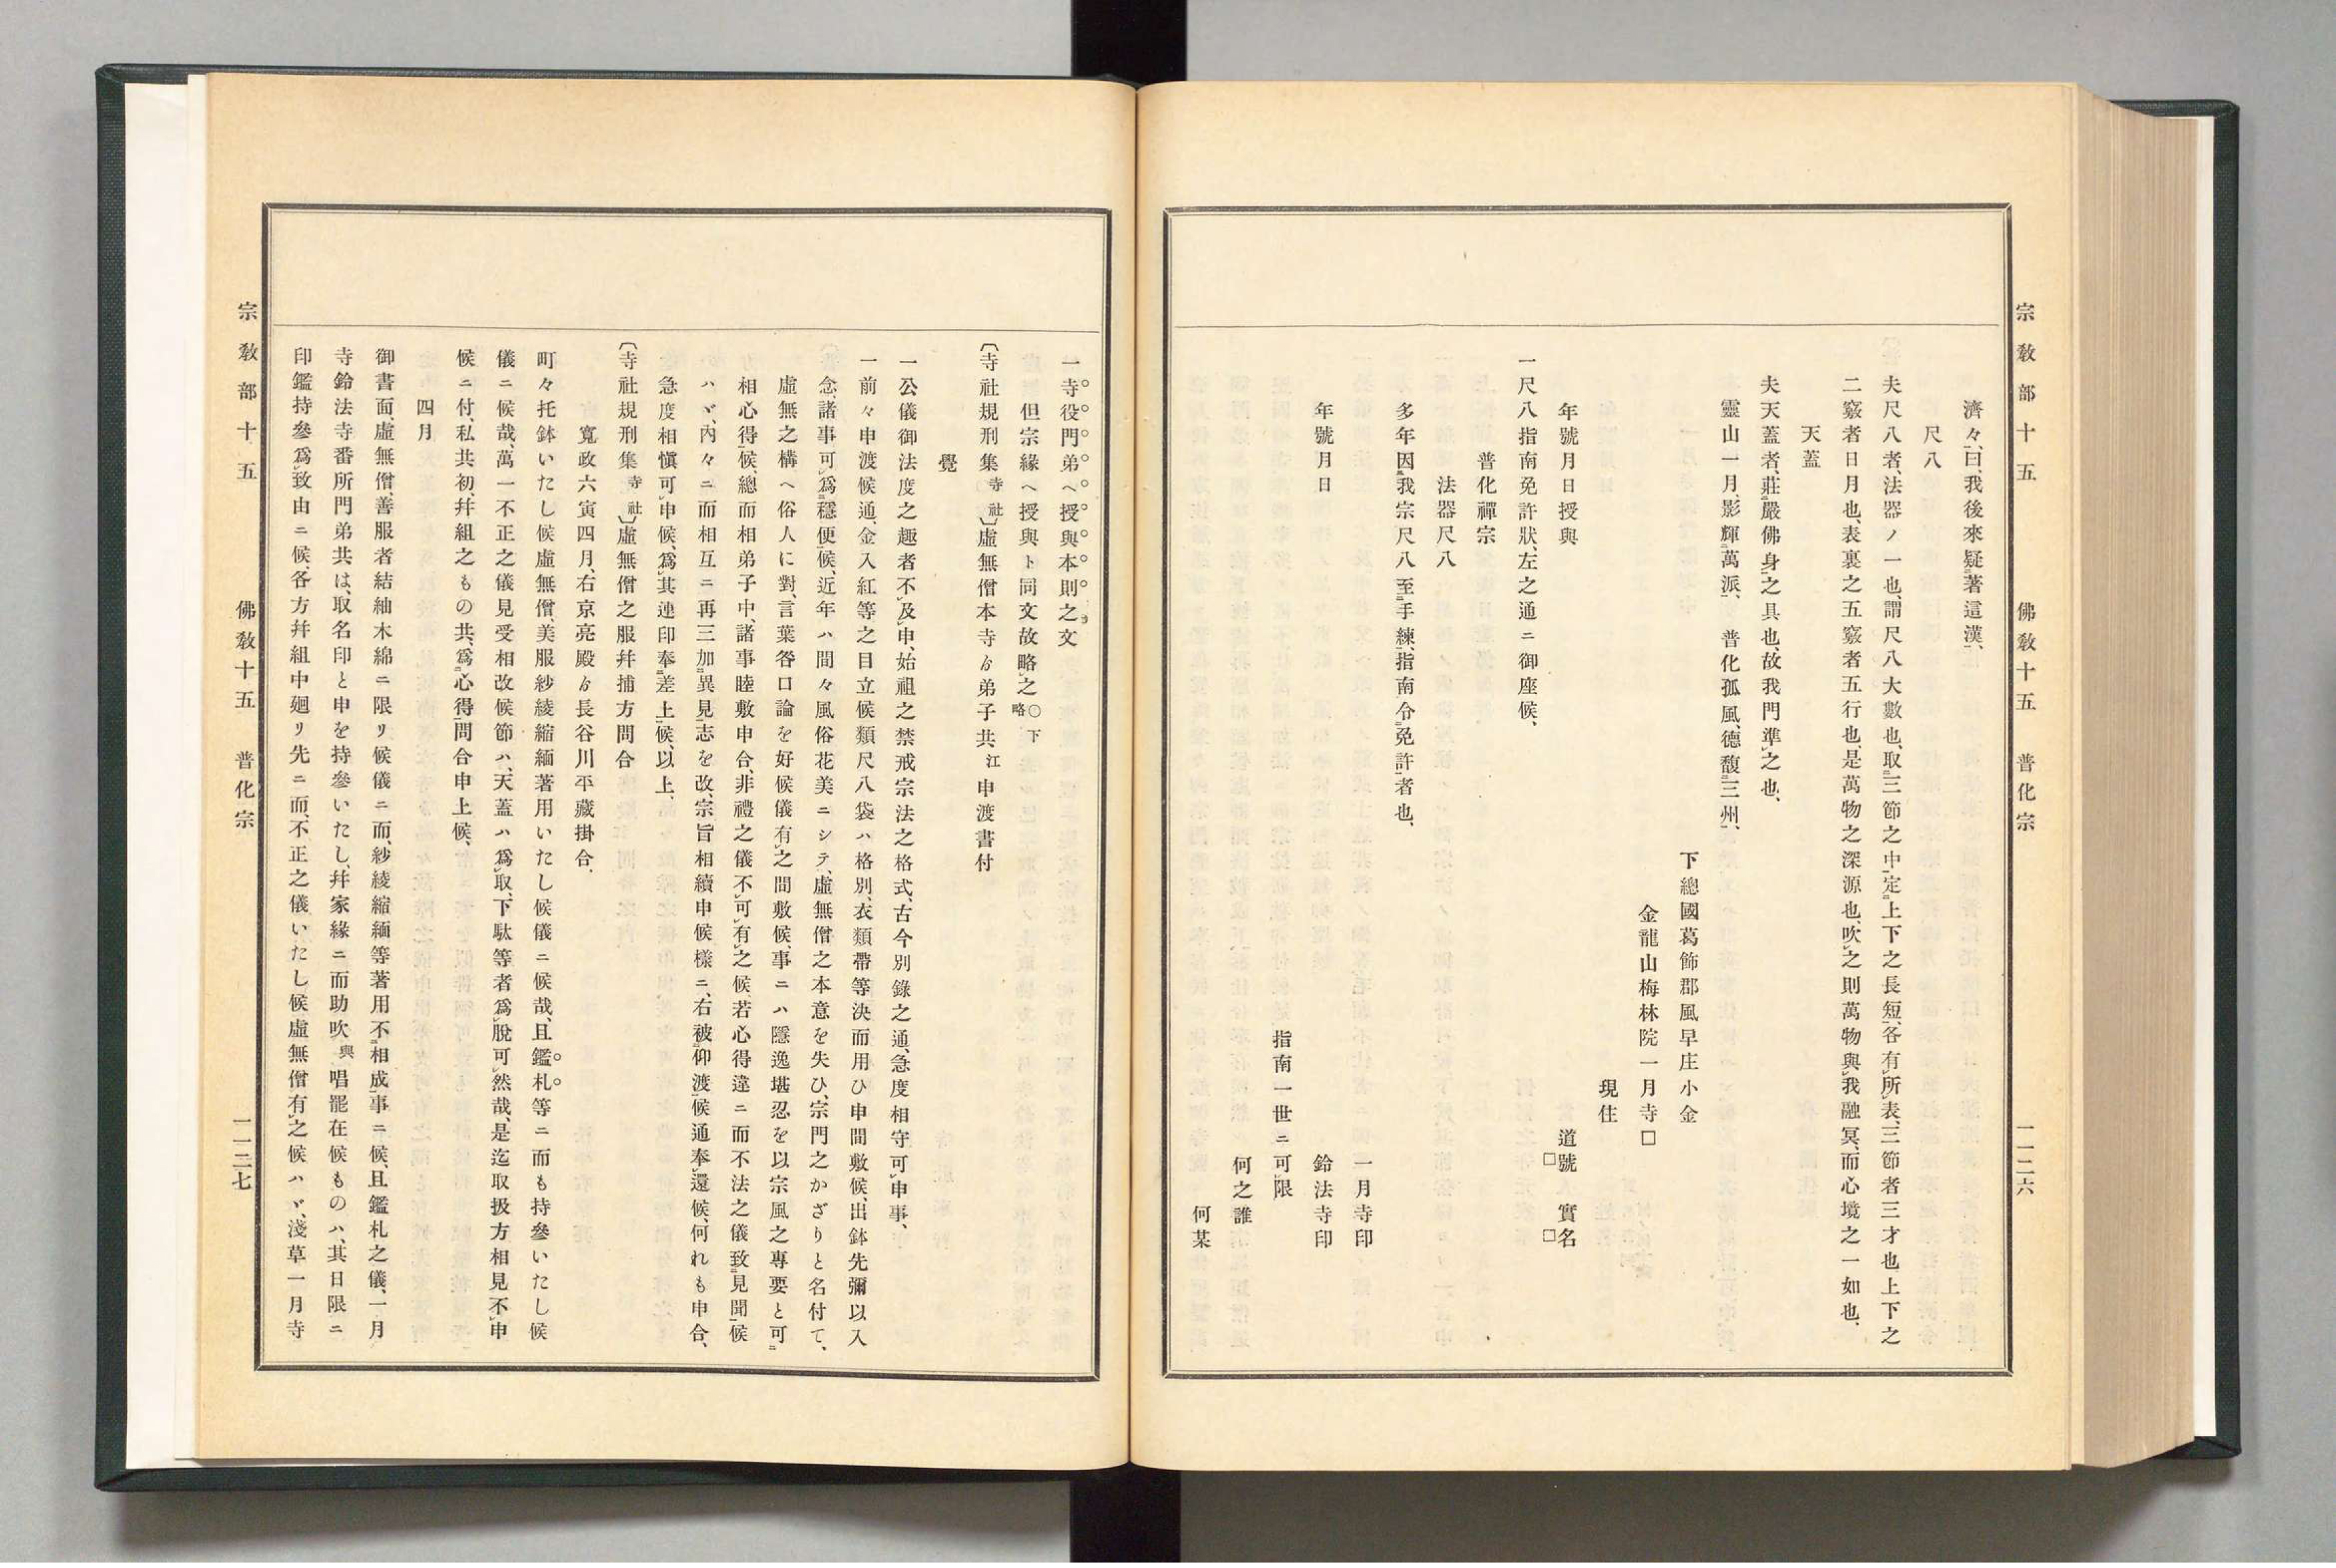 宗教部十五 佛教十五 普化宗 一一二六
濟々、曰、我後來疑著這漢、
尺八
夫尺八者、法器ノ一也、謂尺八大數也、取三節之中、定上下之長短、各有所表、三節者三才也、上下之
二竅者日月也、表裏之五竅者五行也、是萬物之深源也、吹之則萬物與我融冥、而心境之一如也、
天蓋
夫天蓋者、莊嚴佛身之具也、故我門準之也、
靈山一月、影輝萬派、 普化孤風、德馥三州、
下總國葛飾郡風早庄小金
金龍山梅林院一月寺□
現住
道號 實名
□ □
年號月日授與
一尺八指南免許狀、左之通ニ御座候、
普化禪宗
法器尺八
多年因我宗尺八至手練、指南令免許者也、
一月寺印
年號月日 鈴法寺印
指南一世ニ可限
何之誰
何某
一寺役門弟へ授與本則之文
但宗緣へ授與ト同文故略之○下略
〔寺社規刑集寺社〕虛無僧本寺ゟ弟子共江申渡書付
覺
一公儀御法度之趣者不及申、始祖之禁戒宗法之格式、古今別錄之通、急度相守可申事、
一前々申渡候通、金入紅等之目立候類尺八袋ハ格別、衣類帶等決而用ひ申間敷候、出鉢先彌以入
念、諸事可爲穩便候、近年ハ間々風俗花美ニシテ、虛無僧之本意を失ひ、宗門之かざりと名付て、
虛無之構へ俗人に對、言葉咎口論を好候儀有之間敷候、事ニハ隱逸堪忍を以宗風之專要と可
相心得候、總而相弟子中、諸事睦敷申合、非禮之儀不可有之候、若心得違ニ而不法之儀致見聞候
ハヾ、內々ニ而相互ニ再三加異見、志を改、宗旨相續申候樣ニ、右被仰渡候通奉還候、何れも申合、
急度相愼可申候、爲其連印奉差上候、以上、
〔寺社規刑集寺社〕虛無僧之服幷捕方問合
寬政六寅四月、右京亮殿ゟ長谷川平藏掛合、
町々托鉢いたし候虛無僧、美服紗綾縮緬著用いたし候儀ニ候哉、且鑑札等ニ而も持參いたし候
儀ニ候哉、萬一不正之儀見受相改候節ハ、天蓋ハ爲取、下駄等者爲脫可然哉、是迄取扱方相見不申
候ニ付、私共初、幷組之もの共、爲心得問合申上候、
四月
御書面、虛無僧、善服者結紬木綿ニ限リ候儀ニ而、紗綾縮緬等著用不相成事ニ候、且鑑札之儀、一月
寺鈴法寺番所門弟共は、取名印と申を持參いたし、幷家緣ニ而助吹與唱罷在候ものハ、其日限ニ
印鑑持參爲致由ニ候、各方幷組中廻リ先ニ而、不正之儀いたし候虛無僧有之候ハヾ、淺草一月寺
宗教部十五 佛教十五 普化宗 一一二七